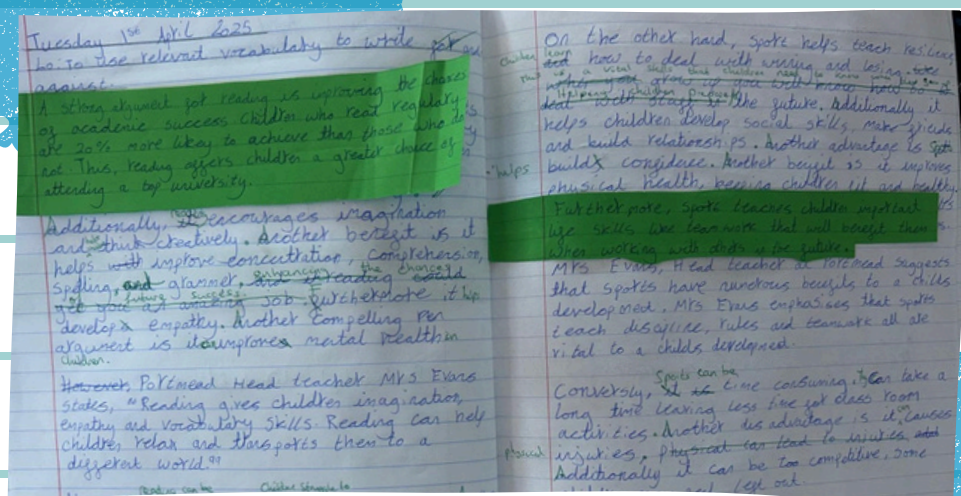 Tuesday 1st April 2025
L.o: To use relevant vocabulary to write for and
against.
A strong argument for reading is improving the chances
of academic success children who read regulary
are 20% more likely to achieve than those who do
not. Thus, reading offers children a greater choice of
attending a top university.
Additionally, encourages imagination
and think creatively. Another benefit is it
helps with improve concentration, comprehension,
enhancing the chances
spelling, and grammer, and reading could
of future success
get you an amazing job. Furthermore it helps
develop empathy. Another compelling
argument is it improves mental health in
children.
However, Portmead Head teacher Mrs Evans
states, "Reading gives children imagination,
empathy and vocabulary skills. Reading can help
children relax and transports them to a
different world."
Reading can be Children struggle to
On the other hand, sport helps teach resilience
children learn
how to deal with winning and losing.
this is a vital skill that children need to know
deal with the future. Additionally it
helps children develop social skills, make friends
and build relationships. Another advantage is sport
builds confidence. Another benefit is it improves
helps
physical health, keeping children fit and healthy.
Furthermore, sport teaches children important
life skills like teamwork that will benefit them
when working with others in the future.
Mrs Evans, Head teacher at Portmead suggests
that sports have numerous benefits to a childs
development. Mrs Evans emphasises that sports
teach discipline, rules and teamwork all are
vital to a childs development.
Sports can be
Conversly, time consuming. It can take a
long time leaving less time for class room
activities. Another disadvantage is it causes
injuries. Physical can lead to injuries, and
physical
Additionally it can be too competitive, some
left out.